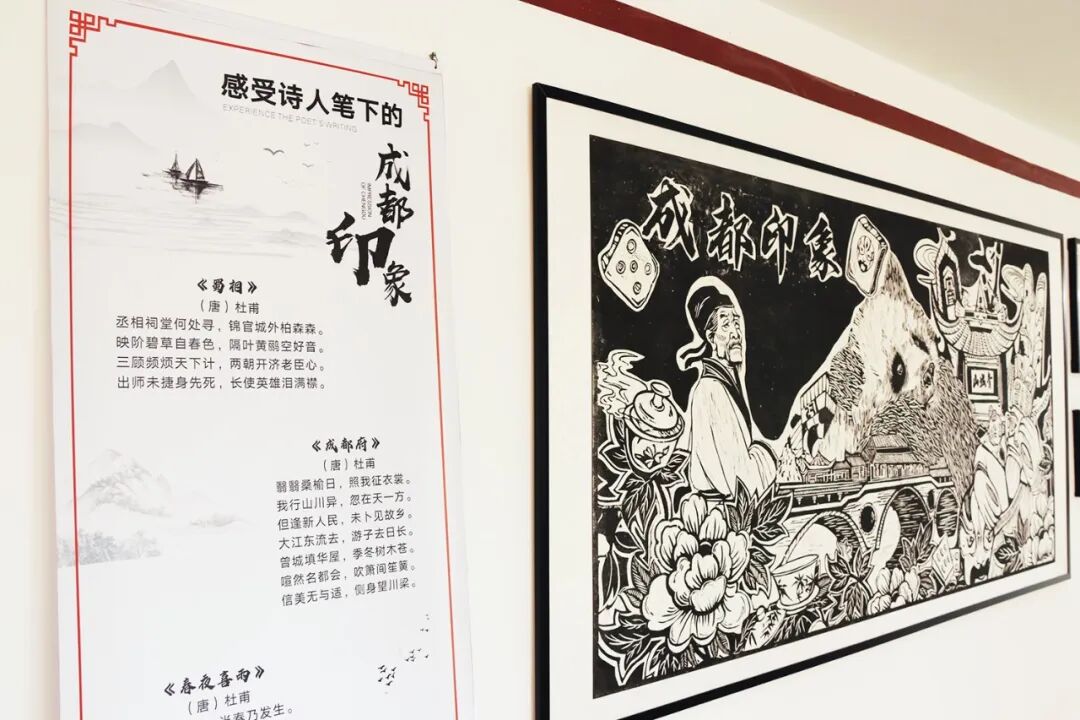 感受诗人笔下的
EXPERIENCE THE POET'S WRITING
成都
IMPRESSION
OF CHENGDU
印象
《蜀相》
（唐）杜甫
丞相祠堂何处寻，锦官城外柏森森。
映阶碧草自春色，隔叶黄鹂空好音。
三顾频烦天下计，两朝开济老臣心。
出师未捷身先死，长使英雄泪满襟。
《成都府》
（唐）杜甫
翳翳桑榆日，照我征衣裳。
我行山川异，忽在天一方。
但逢新人民，未卜见故乡。
大江东流去，游子去日长。
曾城填华屋，季冬树木苍。
喧然名都会，吹箫间笙簧。
信美无与适，侧身望川梁。
《春夜喜雨》
（唐）杜甫
当春乃发生。
成都印象